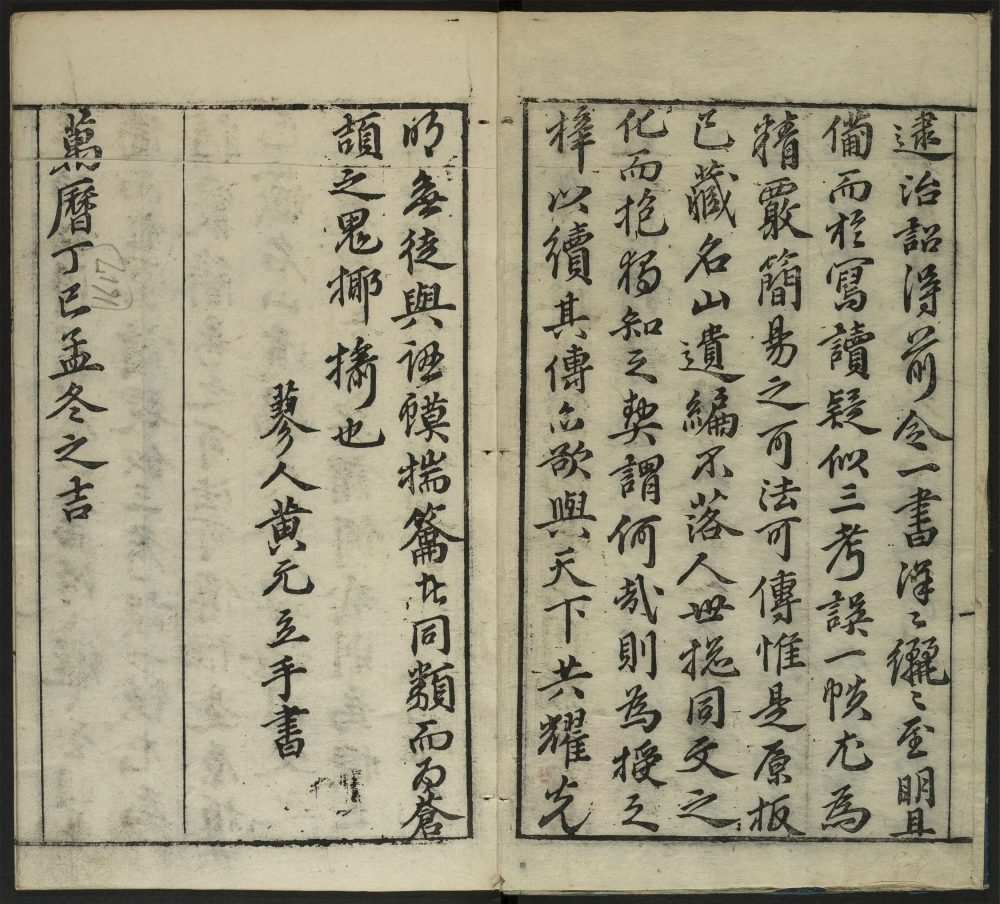 逮治詔得前令一書洋〻纚〻至明且
備而於寫讀疑似三考誤一帙尤為
精覈簡易之可法可傳惟是原板
已藏名山遺編不落人世揔同文之
化而抱獨知之契謂何哉則為授之
梓以續其傳亦欲與天下共耀光
明無徒與謨揣籥者同類而為蒼
頡之鬼揶揄也
蓼人黄元立手書
萬曆丁巳孟冬之吉
1617